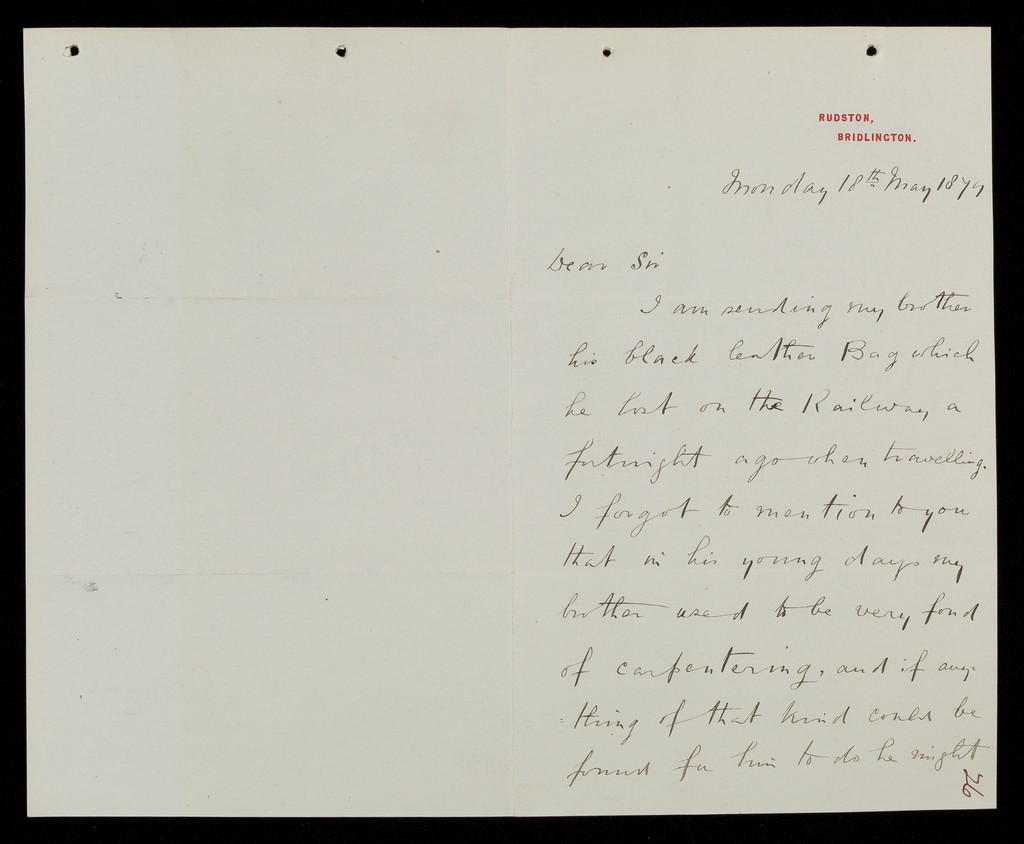 RUDSTON,
BRIDLINGTON.
Monday 18th May 1879
Dear Sir
I am sending my brother
his black leather Bag which
he lost on the Railway a
fortnight ago when travelling.
I forgot to mention to you
that in his young days my
brother used to be very fond
of carpentering, and if any-
:thing of that kind could be
found for him to do he might
26